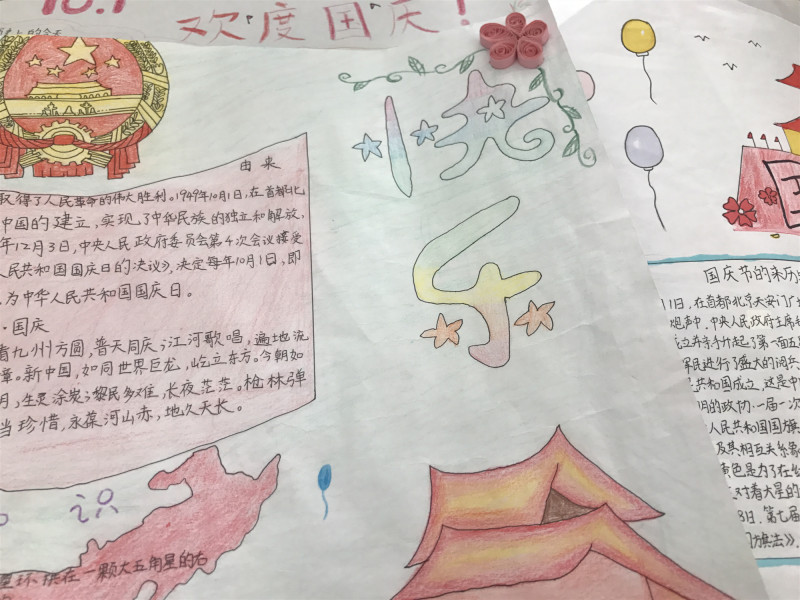 10.1
欢度国庆！
快
乐
由来
取得了人民革命的伟大胜利。1949年10月1日，在首都北
中国的建立，实现了中华民族的独立和解放，
年12月3日，中央人民政府委员会第4次会议接受
人民共和国国庆日的决议》，决定每年10月1日，即
，为中华人民共和国国庆日。
·国庆
看九州方圆，普天同庆；江河歌唱，遍地流
章。新中国，如同世界巨龙，屹立东方。今朝如
月，生灵涂炭；黎民多难，长夜茫茫。枪林弹
当珍惜，永葆河山赤，地久天长。
识
环拱在一颗大五角星的右
国庆节的来历
1日，在首都北京天安门广
炮声中，中央人民政府主席
成立并亲手升起了第一面五
军民进行了盛大的阅兵
民共和国成立，这是中
的政协一届一次
人民共和国国旗
及其相互关系象
黄色是为了在
对着大星的
8日，第七届
国旗法》，